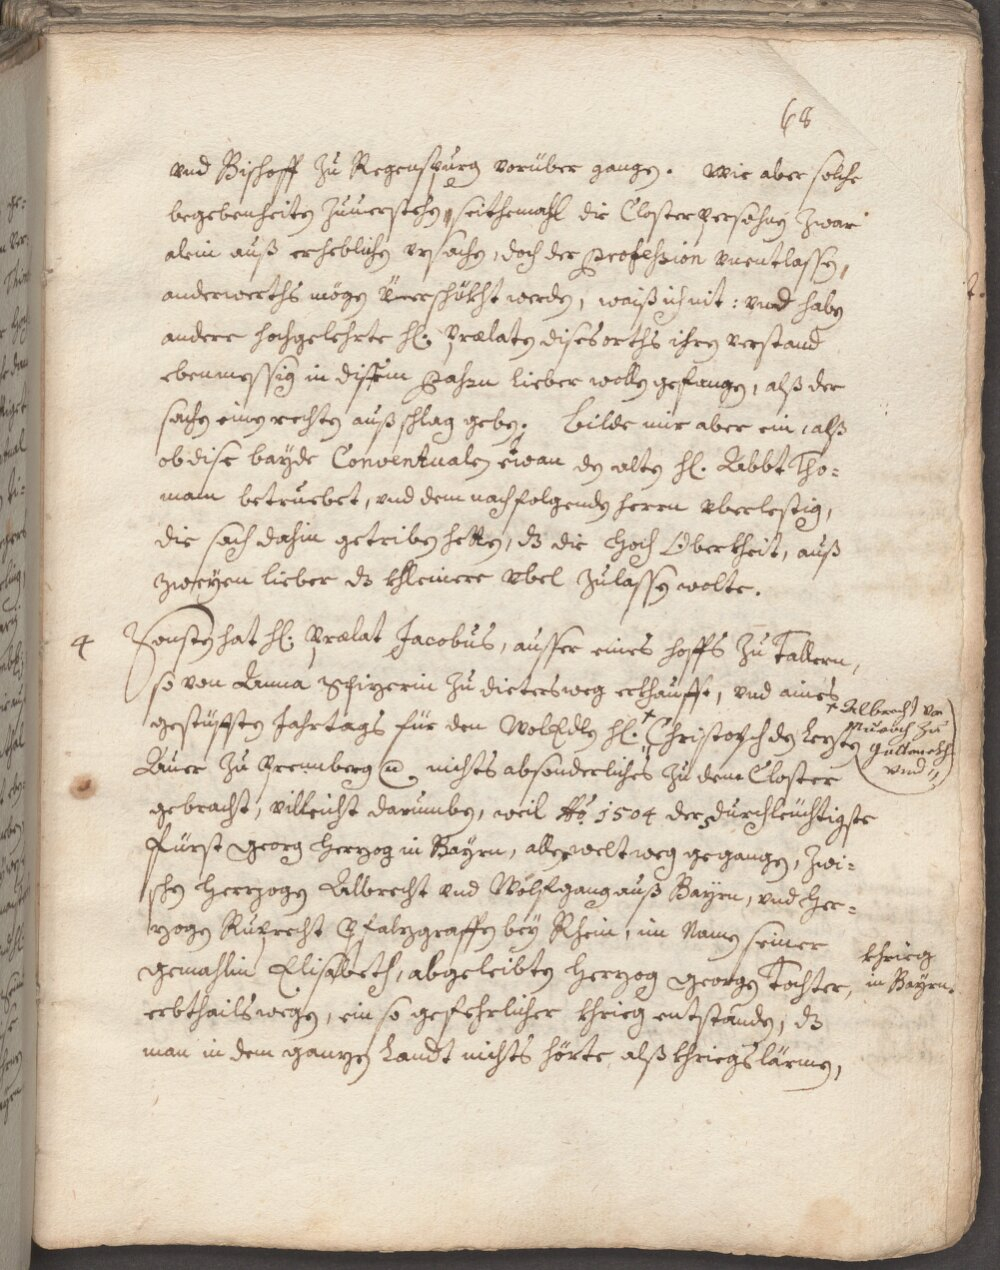 68
vnd Bischoff zu Regenspurg vorüber gangen. Wie aber solche
begebenheiten zuuerstehen, seithemahl die Closter Persohnen zwar
alein auß erheblichen vrsachen, doch der Profession vnentlassen,
anderwerths mögen verschükht werden, waiß ich nit: vnd haben
andere hochgelehrte hl: Prælaten dises orths ihren verstand
ebenmessig in disem lieber wollen gefangen, alß der
sachen einen rechten außschlag geben. Bilde mir aber ein, alß
ob dise bayde Conventualen etwan den alten hl. Abbt Tho=
mam betruebet, vnd dem nachfolgenden herrn vberlestig,
die sach dahin getriben hetten, dz die hoch Oberkheit, auß
zweyen lieber dz khleinere vbel zulassen wolte.
4 Sonsten hat hl: Prælat Jacobus, ausser eines hoffs zu Tallern,
so von Anna zu dietersweg erkhaufft, vnd aines
gestüfften Jahrtags für den WolEdlen hl: + Christoph den Lezten
+ Albrecht von
Murach zu
Guttenekh
vnd
Auer zu Prennberg nichts absonderliches zu dem Closter
gebracht, villeicht darumben, weil Ao. 1504 der durchleüchtigste
Fürst Georg Herzog in Bayrn, aller welt weg gegangen, zwi=
schen Herzogen Albrecht vnd Wolfgang auß Bayrn, vnd Her=
zogen Ruprecht Pfalzgraffen bey Rhein, im Namen seiner
gemahlin Elisabeth, abgeleibten Herzog Georgen Tochter,
khrieg
in Bayrn.
erbthails wegen, ein so gefehrlicher khrieg entstanden, dz
man in dem ganzen Landt nichts hörte, alß khriegslärmen,